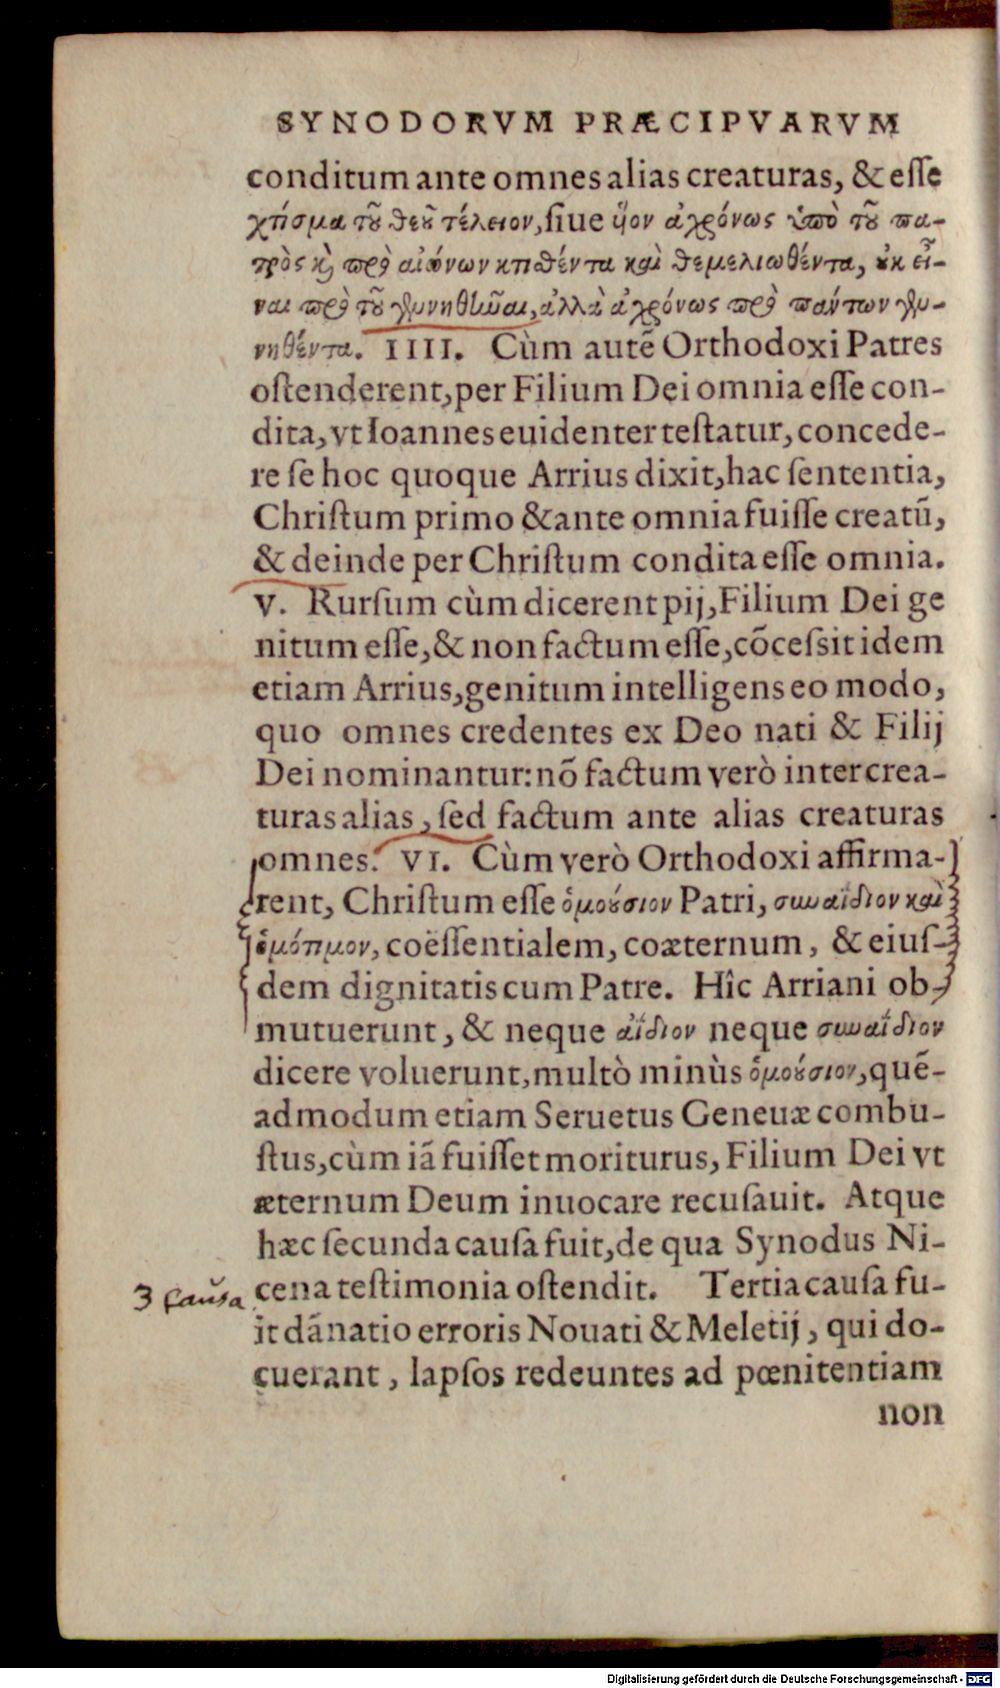 SYNODORVM PRÆCIPVARVM
conditum ante omnes alias creaturas, & esse
κτίσμα τοῦ θεοῦ τέλειον, siue ὑὸν ἀχρόνως ὑπὸ τοῦ πα-
τρὸς καὶ πρὸ αἰώνων κτιθέντα καὶ θεμελιωθέντα, οὐκ εἶ-
ναι πρὸ τοῦ γεννηθῆναι, ἀλλὰ ἀχρόνως πρὸ πάντων γεν-
νηθέντα. IIII. Cùm autē Orthodoxi Patres
ostenderent, per Filium Dei omnia esse con-
dita, vt Ioannes euidenter testatur, concede-
re se hoc quoque Arrius dixit, hac sententia,
Christum primo & ante omnia fuisse creatū,
& deinde per Christum condita esse omnia.
V. Rursum cùm dicerent pij, Filium Dei ge
nitum esse, & non factum esse, cōcessit idem
etiam Arrius, genitum intelligens eo modo,
quo omnes credentes ex Deo nati & Filij
Dei nominantur: nō factum verò inter crea-
turas alias, sed factum ante alias creaturas
omnes. VI. Cùm verò Orthodoxi affirma-
rent, Christum esse ὁμούσιον Patri, συναΐδιον καὶ
ὁμότιμον, coëssentialem, coæternum, & eius-
dem dignitatis cum Patre. Hîc Arriani ob-
mutuerunt, & neque ἀΐδιον neque συναΐδιον
dicere voluerunt, multò minùs ὁμούσιον, quē-
admodum etiam Seruetus Geneuæ combu-
stus, cùm iā fuisset moriturus, Filium Dei vt
æternum Deum inuocare recusauit. Atque
hæc secunda causa fuit, de qua Synodus Ni-
3 Causa cena testimonia ostendit. Tertia causa fu-
it dānatio erroris Nouati & Meletij, qui do-
cuerant, lapsos redeuntes ad pœnitentiam
non
Digitalisierung gefördert durch die Deutsche Forschungsgemeinschaft - DFG